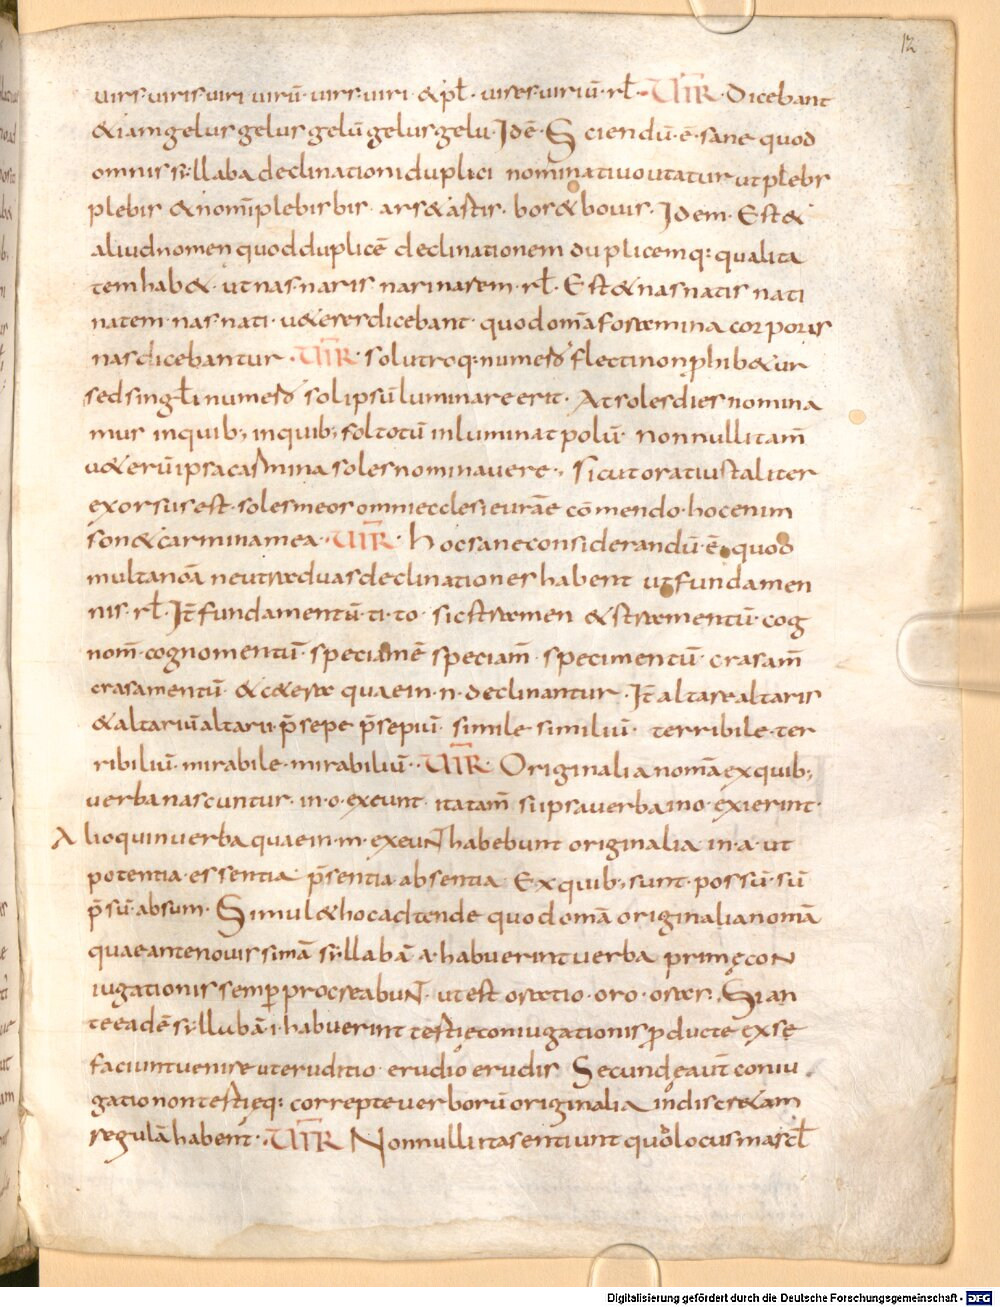 12
uirs·uiris uiri uirū·uirs·uiri &pł· uires·uiriū·rł· UIR̄· Dicebant
&iam gelus gelus gelū gelus gelu· Idē· Sciendū·ē·sane quod
omnis sillaba declinationi duplici nominatiuo utatur ut plebs
plebis & nom̄ plebis bis· ars & astis· bos & bouis· Idem· Est &
aliud nomen quod duplicē declinationem duplicemq: qualita
tem hab&· ut nas·naris narinarem·rł· Est & nas natis nati
natem·nas·nati·u&eres dicebant· quod om̄a foramina corporis
nas dicebantur· UIR̄· sol utroq: numero flecti non phib&ur
sed singłi numero sol ipsū luminare erit· At soles dies nomina
mus inquib; inquib; sol totū inluminat polū· Nonnulli tam̄
u&erū ipsa carmina soles nominauere· sicut oratius taliter
exorsus est· soles meos omni ecclesie uranię cōmendo·hoc enim
son& carmina mea· UIR̄· Hoc sane considerandū·ē·quod
multa nom̄a neutra duas declinationes habent ut fundamen
nis·rł· It̄ fundamentū·ti·to· sic stramen & stramentū·cog
nom̄·cognomentū· speciamē speciam̄· specimentū· crasam̄
crasamentū· & c&era quae in·n·declinantur· It̄ altare altaris
& altariū altarii·p̄sepe p̄sepiū· simile·similiū· terribile·ter
ribiliū·mirabile·mirabiliū· UIR̄· Originalia nom̄a ex quib;
uerba nascuntur·in·o·exeunt· ita tam̄ si ipsa uerba in o·exierint·
Alioquin uerba quae in·m·exeunt habebunt originalia in·a·ut
potentia·essentia· p̄sentia·absentia· Ex quib; sunt·possū·sū
p̄sū·absum· Simul & hoc adtende quod om̄a originalia nom̄a
quae ante nouissimā sillabā·a·habuerint uerba primę con
iugationis semper procreabunt· ut est oratio·oro·oras· Si an
te eadē sillabā·i·habuerint tertię coniugationis producte ex se
faciunt uenire ut eruditio· erudio erudis Secundę aut̄ coniu
gationon tertięq: correpte uerborū originalia indiscretam
regulā habent· UIR̄ Nonnulli ita sentiunt quod locus mascł
Digitalisierung gefördert durch die Deutsche Forschungsgemeinschaft - DFG